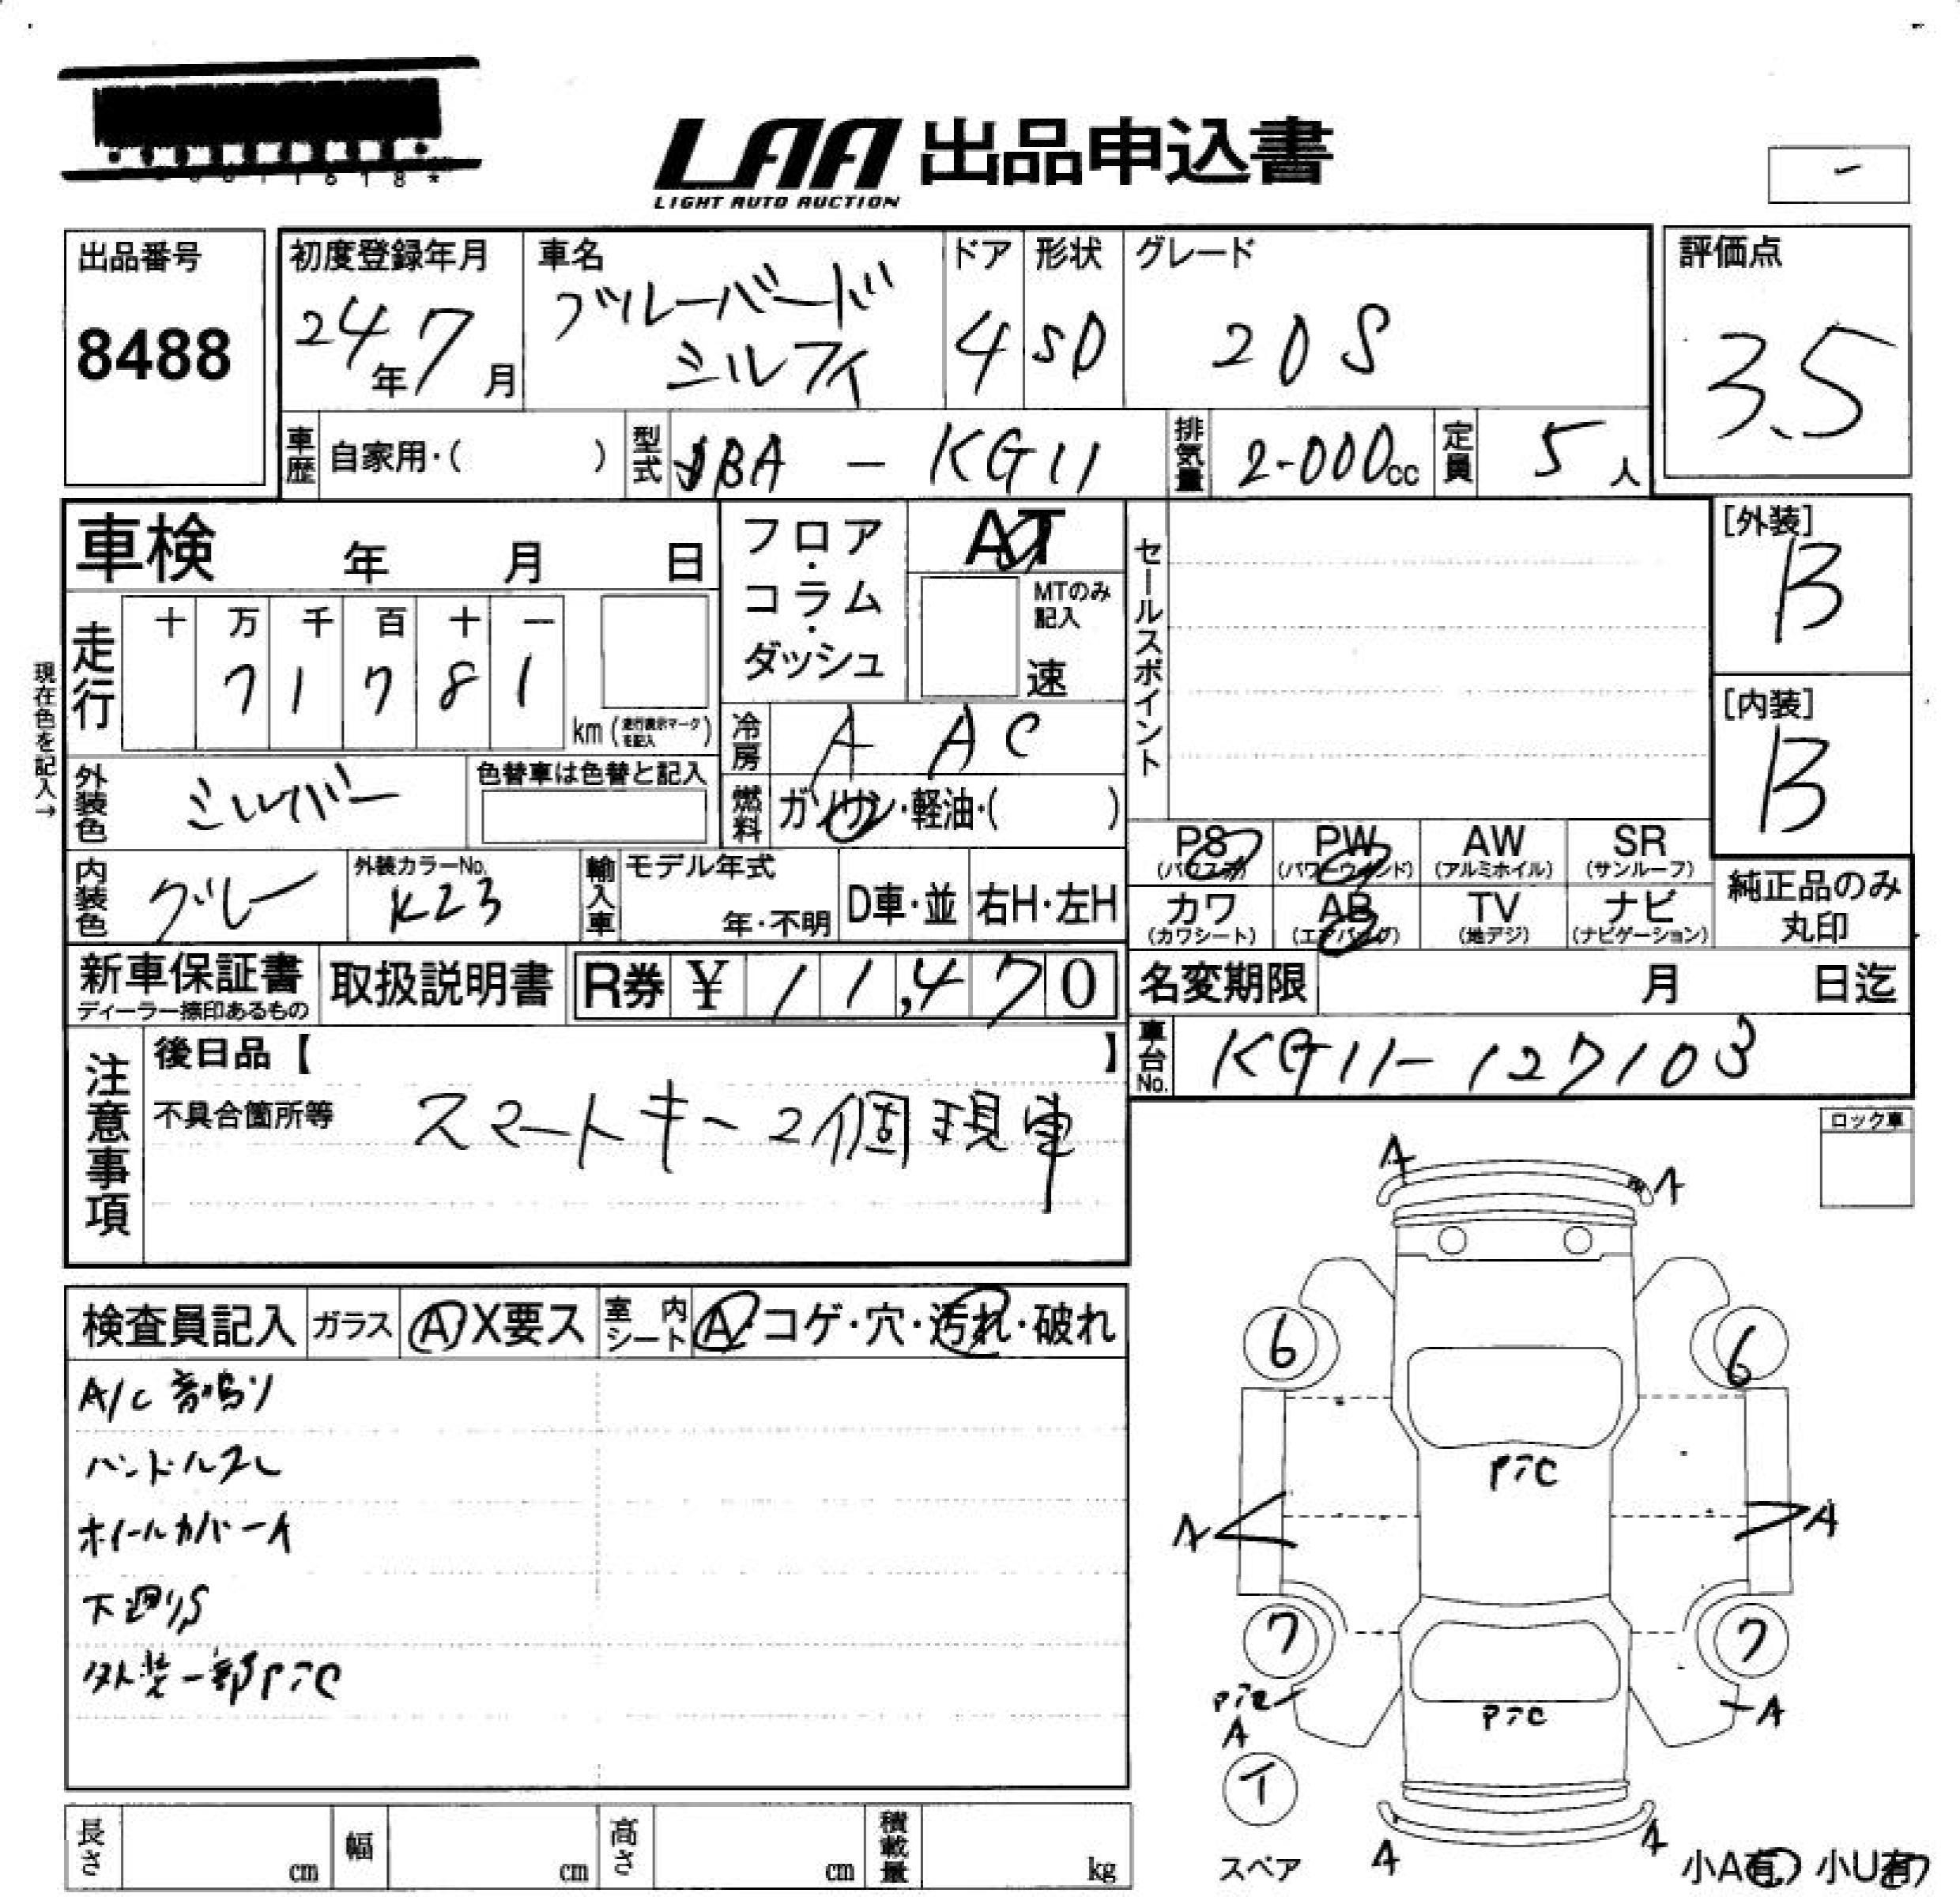 LAA 出品申込書
LIGHT AUTO AUCTION
出品番号
8488
初度登録年月
24年7月
車名
ブルーバード
シルフィ
ドア
4
形状
SD
グレード
20S
評価点
3.5
車歴
自家用・( )
型式
DBA - KG11
排気量
2.000cc
定員
5人
車検 年 月 日
フロア・コラム・ダッシュ
AT
MTのみ記入
速
セールスポイント
[外装]
B
[内装]
B
現在色を記入→
走行
十 万 千 百 十 一
7 1 7 8 1
km (走行表示マークを記入)
冷房
AAC
燃料
ガソリン・軽油・( )
外装色
シルバー
色替車は色替と記入
内装色
グレー
外装カラーNo.
K23
輸入車
モデル年式
年・不明
D車・並
右H・左H
PS
(パワステ)
PW
(パワーウィンド)
AW
(アルミホイル)
SR
(サンルーフ)
カワ
(カワシート)
AB
(エアバッグ)
TV
(地デジ)
ナビ
(ナビゲーション)
純正品のみ
丸印
新車保証書
ディーラー捺印あるもの
取扱説明書
R券 ¥ 11,470
名変期限 月 日迄
車台No.
KG11-127103
注意事項
後日品【 】
不具合箇所等
スマートキー2個現車
ロック車
検査員記入
ガラス
A X要ス
室内シート
A・コゲ・穴・汚れ・破れ
A/C 音鳴り
ハンドルスレ
ホイールカバーA
下廻りS
外装一部PテC
A
A
6
6
PテC
A
A
7
7
PテC
A
PテC
A
T
スペア
A
A
小A有 小U有
長さ cm
幅 cm
高さ cm
積載量 kg